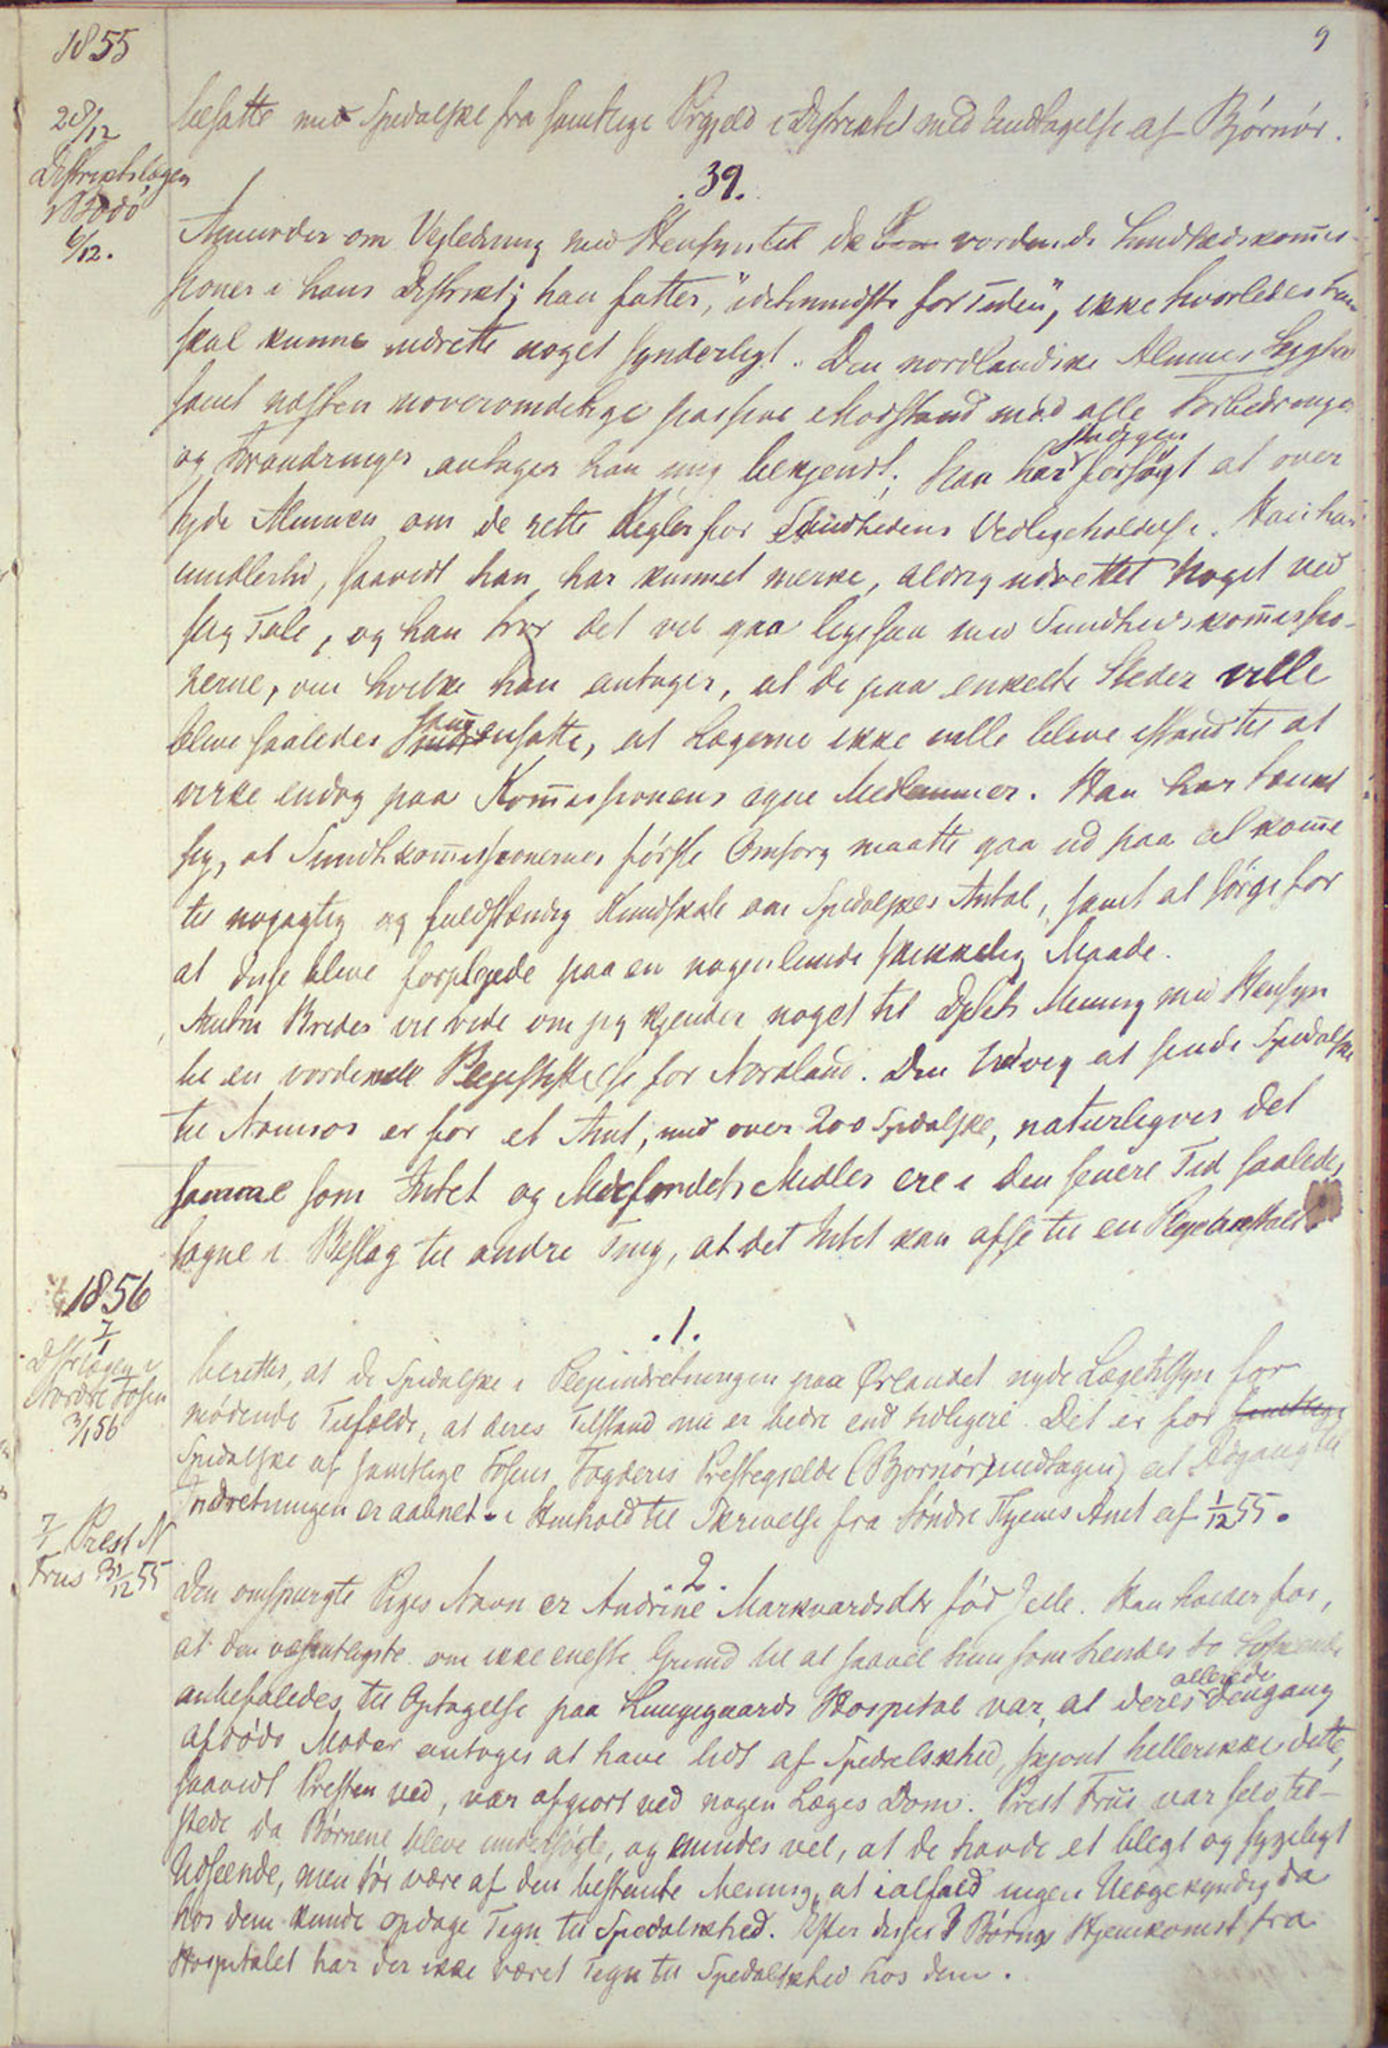 1855
9
28/12
Distriktslægen
i Bodö
6/12.
besatte med Spedalske fra samtlige Prgjeld i Distriktet med Undtagelse af Björnör.
.39.
Anmoder om Vejledning med Hensyn til de vordende Sundhedskommis-
sioner i hans Distrikt; han fatter, "idetmindste for Tiden", ikke hvorledes han
skal kunne udrette noget synderligt. Den nordlandske Almues
samt næsten uovervindelige passive Modstand mod alle Forbedringer
og Forandringer antager han mig bekjendt; han har stadigen forsögt at over
tyde Almuen om de rette Regler for Sundhedens Vedligeholdelse. Han har
imidlertid, saavidt han har kunnet merke, aldrig udrettet noget ved
sig Tale, og han tror det vil gaa ligesaa med Sundhedskommissio-
nerne, om hvilke han antager, at de paa enkelte Steder ville
blive saaledes sammensatte, at Lægerne ikke ville blive istand til at
virke endog paa Kommissionens egne Medlemmer. Han har tænkt
sig, at Sundhkommissionernes förste Omsorg maatte gaa ud paa at komme
til nöjagtig og fuldstændig Kundskab om Spedalskes Antal, samt at sörge for
at disse blive forplejede paa en nogenlunde skikkelig Maade.
Amtm Bredes vil vide om jeg kjender noget til Dpts Mening med Hensyn
til en vordende Plejestiftelse for Nordland. Den Udvej at sende Spedalske
til Namsos er for et Amt, med over 200 Spedalske, naturligvis det
samme som Intet og Medfondets Midler ere i den senere Tid saaledes
tagne i Beslag til andre Ting, at det Intet kan afse til en Plejeanstalt
1856
7/1
Distrlægen i
Nordre Fosen
3/1 56
.1.
beretter, at de Spedalske i Plejeindretningen paa Ørlandet nyde Lægetilsyn for
mödende Tilfælde, at deres Tilstand nu er bedre end tidligere. Det er for samtlige
Spedalske af samtlige Fosens Fogderis Prestegjelde (Bjornör undtagen) at Adgang til
Indretningen er aabnet i Henhold til Skrivelse fra Söndre Thjems Amt af 1/12 55.
7/1 Prest N
Friis 31/12 55
.2.
Den omspurgte Piges Navn er Andrine Markvardsdtr föd Jelle. Han holder for,
at den væsentligste om ikke eneste Grund til at saavel hun som hendes to Söskende
anbefaledes til Optagelse paa Lungegaards Hospital var, at deres allerede dengang
afdöde Moder antoges at have lidt af Spedalskhed, skjont heller ikke dette,
saavidt Presten ved, var afgjort ved nogen Læges Dom. Prest Friis var selv til-
stede da Børnene bleve undersögte, og mindes vel, at de havde et blegt og sygeligt
Udseende, men tör være af den bestemte Mening, at ialfald ingen Ulægekyndig da
hos dem kunde opdage Tegn til Spedalskhed. Efter disse 3 Börns Hjemkomst fra
Hospitalet har der ikke været Tegn til Spedalskhed hos dem.